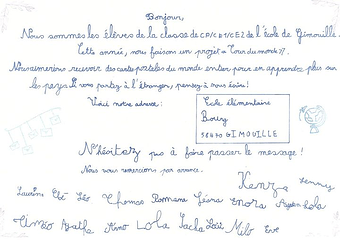 Bonjour,
Nous sommes les élèves de la classe de CP/CE1/CE2 de l'école de Gimouille.
Cette année, nous faisons un projet "Tour du monde".
Nous aimerions recevoir des cartes postales du monde entier pour en apprendre plus sur
les pays. Si vous partez à l'étranger, pensez à nous écrire!
Voici notre adresse:
Ecole élémentaire
Bourg
58470 GIMOUILLE
N'hésitez pas à faire passer le message!
Nous vous remercions par avance.
Kenza
Lenny
Laurine Léo Thomas Romane Enora
Timéo Agatha Lola Sacha Loïs Milo Eve